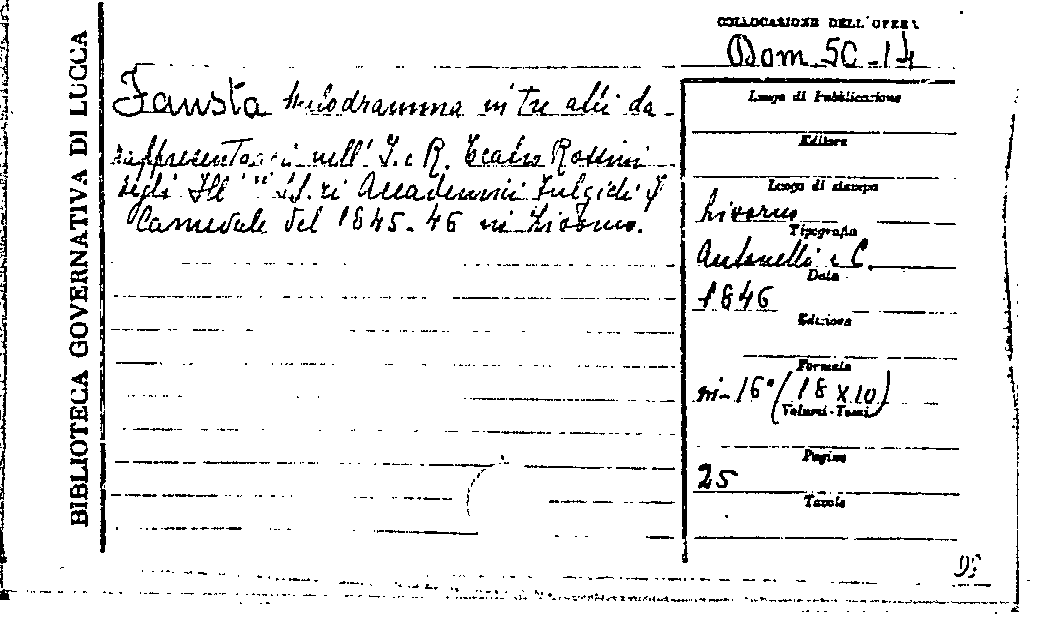 BIBLIOTECA GOVERNATIVA DI LUCCA
COLLOCAZIONE DELL'OPERA
Dom. 5C-14
Fausta Melodramma in tre atti da
rappresentarsi nell' I. e R. Teatro Rossini
degli Ill SS.ri Accademici Fulgidi
Carnevale del 1845-46 in Livorno.
Luogo di Pubblicazione
Editore
Luogo di stampa
Livorno
Tipografia
Antonelli e C.
Data
1846
Edizione
Formato
in-16° (18 x 10)
Volumi-Tomi
Pagine
25
Tavole